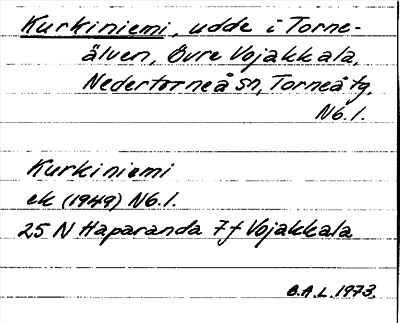 Kurkiniemi, udde i Torne-
älven, Övre Vojakkala,
Nedertorneå sn, Torneå tg,
Nb. l.
Kurkiniemi
ek (1949) Nb. l.
25 N Haparanda 7f Vojakkala
B.A.L. 1973.